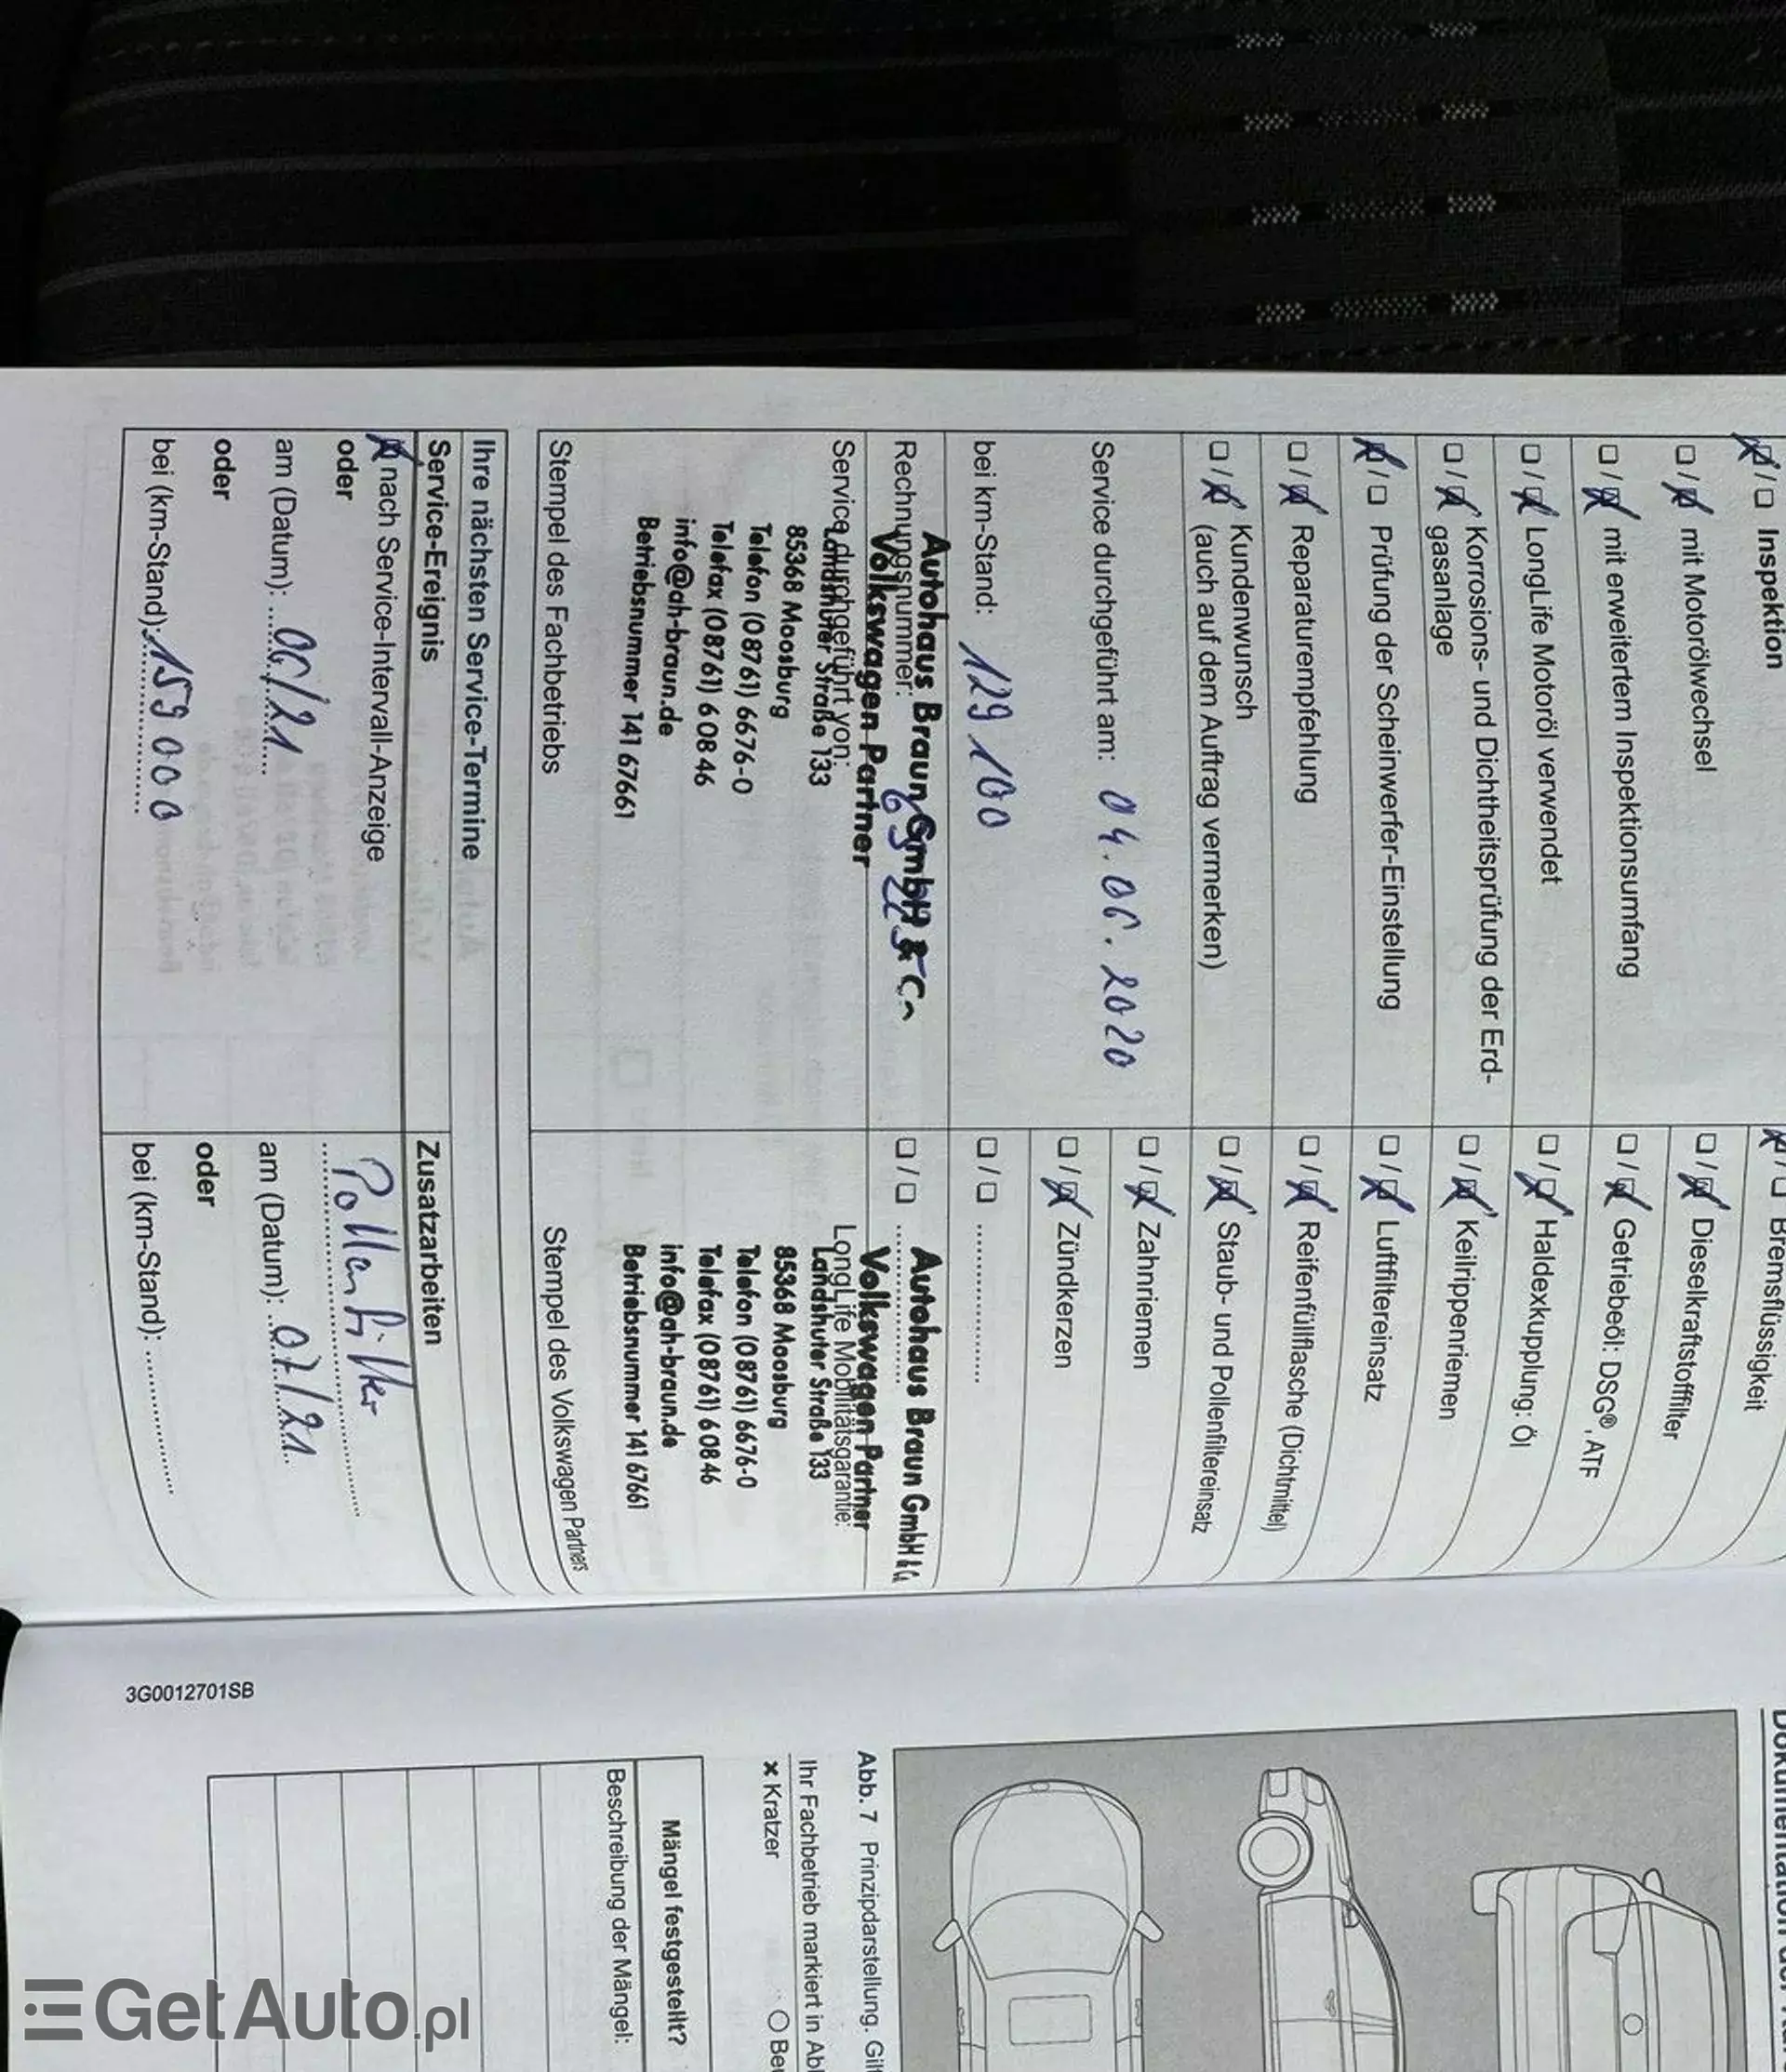 ☒ / ☐ Inspektion
☐ / ☒ mit Motorölwechsel
☐ / ☒ mit erweitertem Inspektionsumfang
☐ / ☒ LongLife Motoröl verwendet
☐ / ☒ Korrosions- und Dichtheitsprüfung der Erd-
gasanlage
☒ / ☐ Prüfung der Scheinwerfer-Einstellung
☐ / ☒ Reparaturempfehlung
☐ / ☒ Kundenwunsch
(auch auf dem Auftrag vermerken)
Service durchgeführt am: 04.06.2020
bei km-Stand: 129 100
Rechnungsnummer:
Service durchgeführt von:
Autohaus Braun GmbH & Co
Volkswagen Partner
Landshuter Straße 133
85368 Moosburg
Telefon (08761) 6676-0
Telefax (08761) 60846
info@ah-braun.de
Betriebsnummer 141 67661
Stempel des Fachbetriebs
Bremsflüssigkeit
☐ / ☒ Dieselkraftstofffilter
☐ / ☒ Getriebeöl: DSG®, ATF
☐ / ☒ Haldexkupplung: Öl
☐ / ☒ Keilrippenriemen
☐ / ☒ Luftfiltereinsatz
☐ / ☒ Reifenfüllflasche (Dichtmittel)
☐ / ☒ Staub- und Pollenfiltereinsatz
☐ / ☒ Zahnriemen
☐ / ☒ Zündkerzen
☐ / ☐ ...............
☐ / ☐ ...............
LongLife Mobilitätsgarantie:
Autohaus Braun GmbH &
Volkswagen Partner
Landshuter Straße 133
85368 Moosburg
Telefon (08761) 6676-0
Telefax (08761) 60846
info@ah-braun.de
Betriebsnummer 141 67661
Stempel des Volkswagen Partners
Ihre nächsten Service-Termine
Service-Ereignis
☒ nach Service-Intervall-Anzeige
oder
am (Datum): 06/21
oder
bei (km-Stand): 159 000
Zusatzarbeiten
Pollenfilter
am (Datum): 07/21
oder
bei (km-Stand): ...............
3G0012701SB
Abb. 7 Prinzipdarstellung.
Ihr Fachbetrieb markiert in
× Kratzer
Mängel festgestellt?
Beschreibung der Mängel:
GetAuto.pl